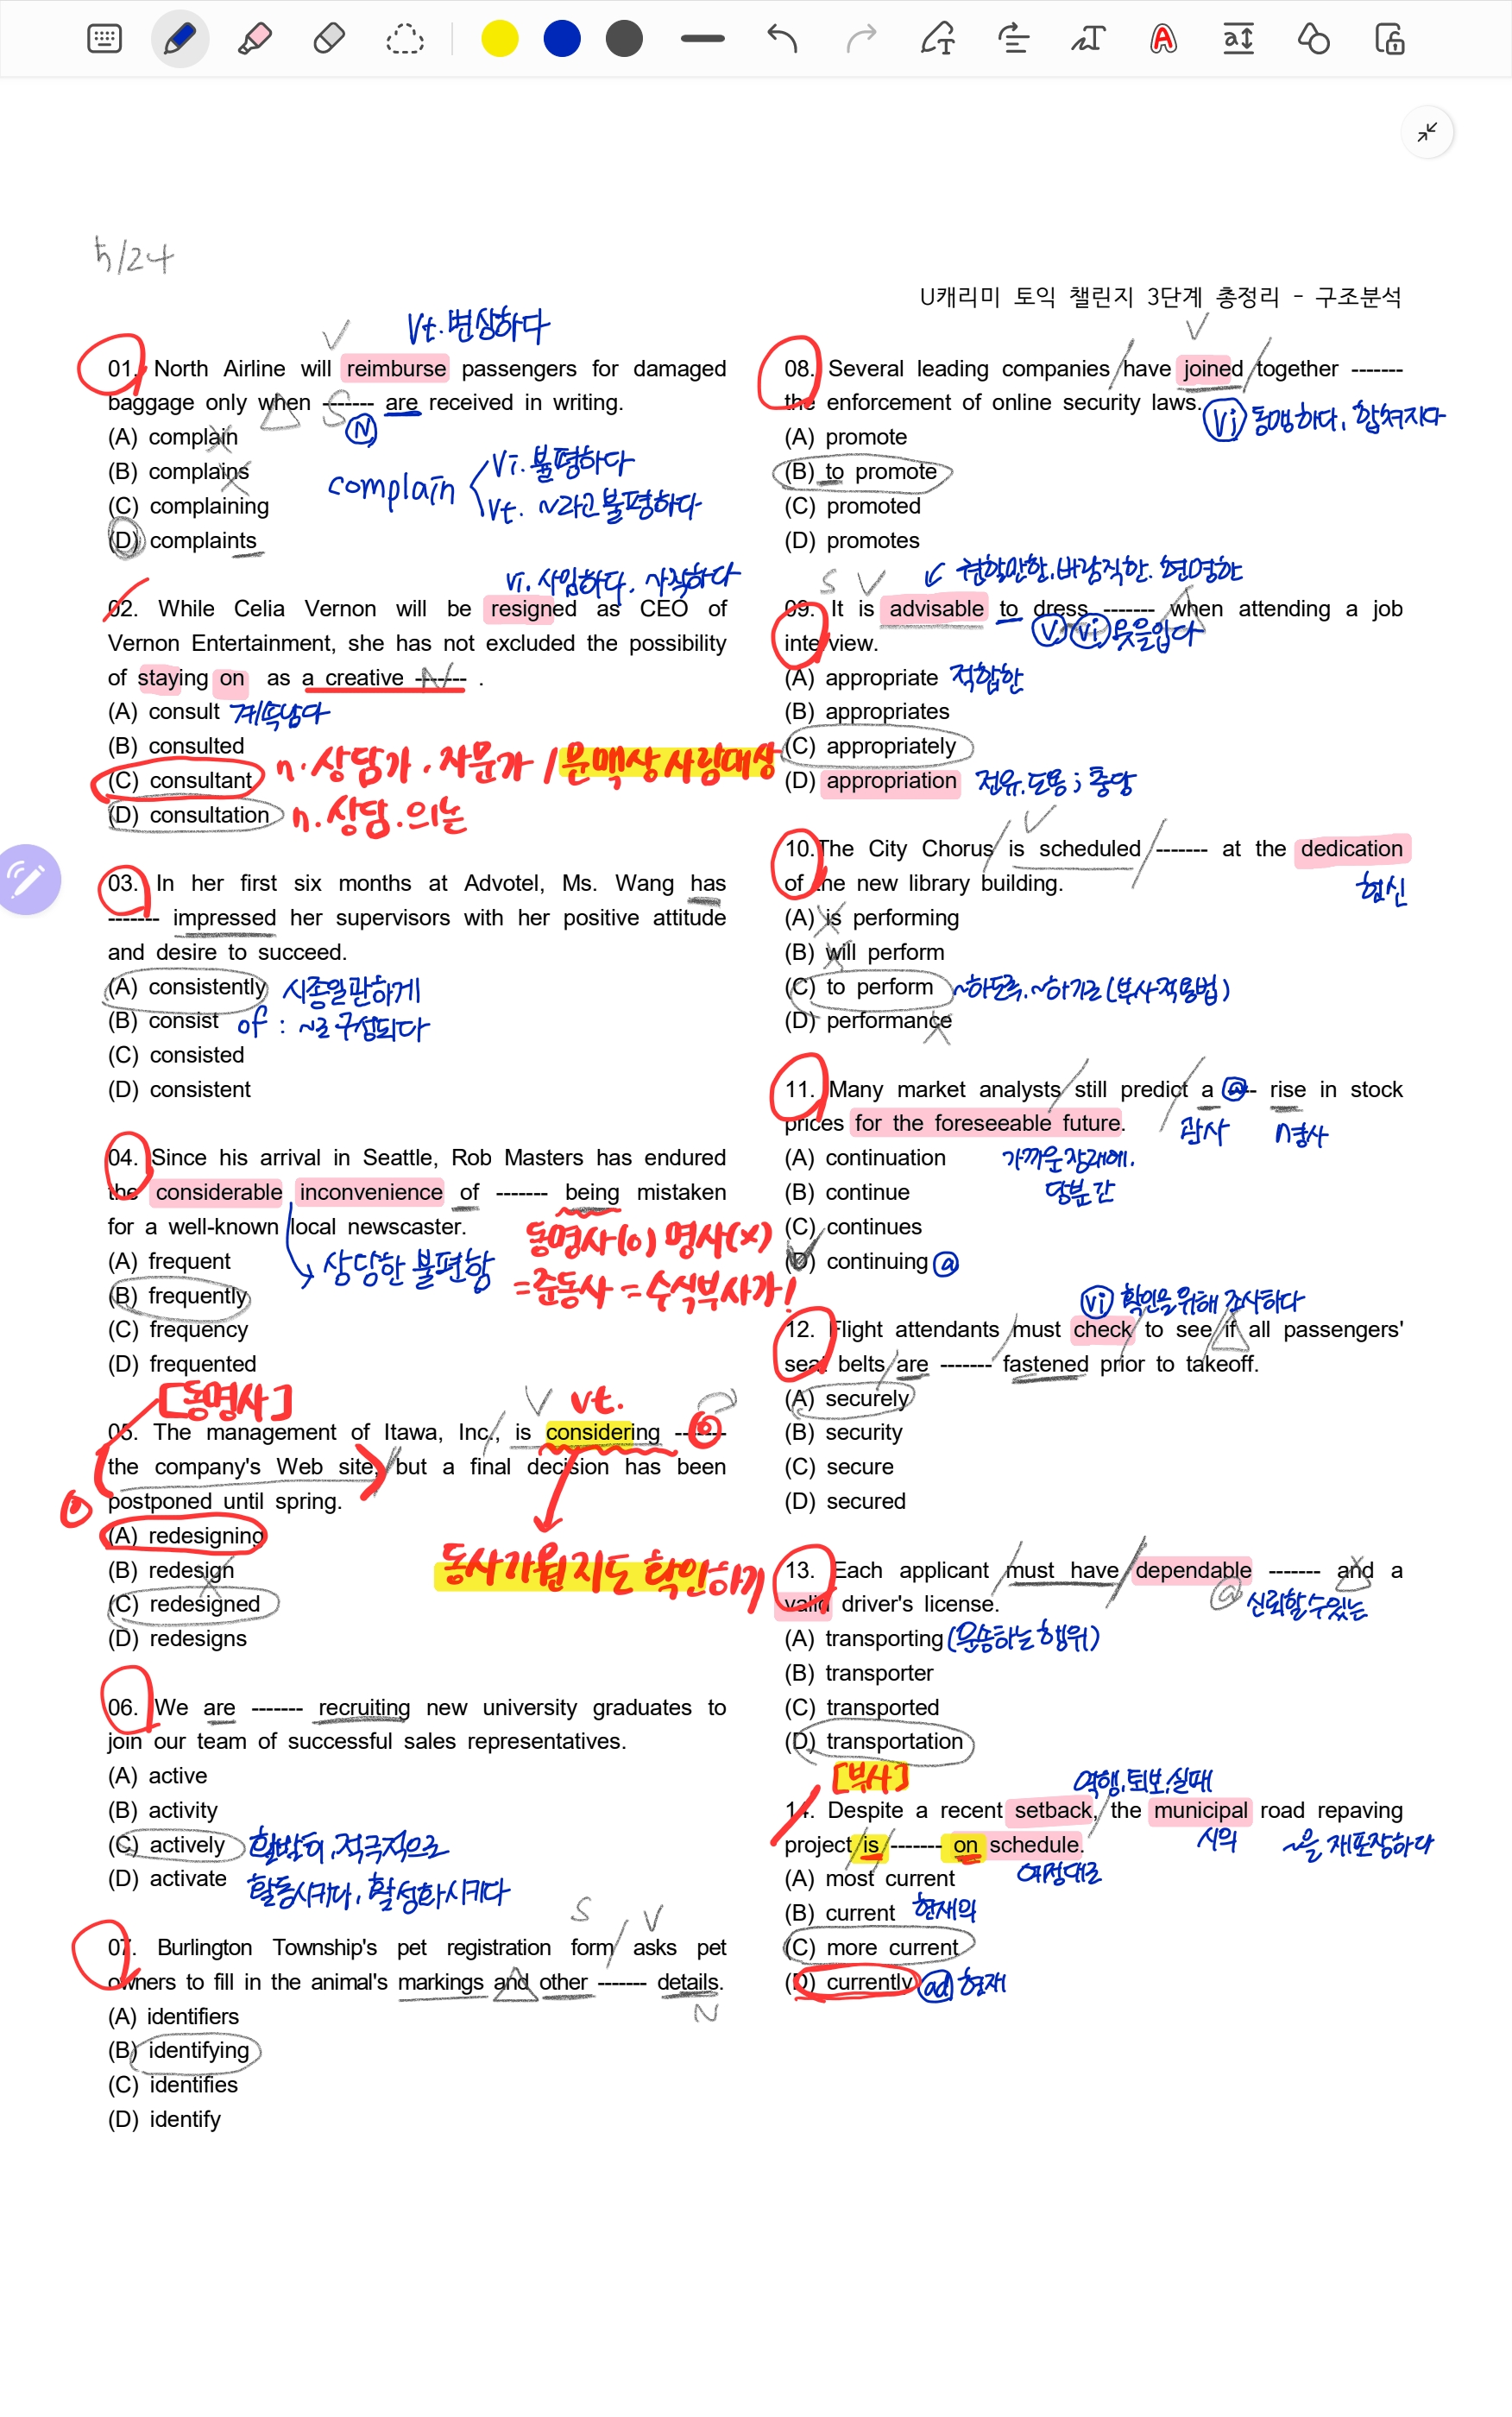 5/24
U캐리미 토익 챌린지 3단계 총정리 - 구조분석
V Vt.변상하다
01. North Airline will reimburse passengers for damaged
baggage only when ------- are received in writing.
S N
(A) complain
(B) complains
(C) complaining
(D) complaints
complain
Vi. 불평하다
Vt. ~라고 불평하다
vi. 사임하다. 사직하다
02. While Celia Vernon will be resigned as CEO of
Vernon Entertainment, she has not excluded the possibility
of staying on as a creative ------- .
N
(A) consult 계속남다
(B) consulted
(C) consultant n.상담가.자문가/문맥상 사람대상
(D) consultation n.상담.의논
03. In her first six months at Advotel, Ms. Wang has
------- impressed her supervisors with her positive attitude
and desire to succeed.
(A) consistently 시종일관하게
(B) consist of : ~로 구성되다
(C) consisted
(D) consistent
04. Since his arrival in Seattle, Rob Masters has endured
the considerable inconvenience of ------- being mistaken
for a well-known local newscaster.
동명사(o) 명사(x)
=준동사=수식부사가!
(A) frequent 상당한 불편함
(B) frequently
(C) frequency
(D) frequented
[동명사] V vt.
05. The management of Itawa, Inc., is considering -------
the company's Web site, but a final decision has been
postponed until spring.
(A) redesigning
(B) redesign 동사가 뭔지도 확인하기
(C) redesigned
(D) redesigns
06. We are ------- recruiting new university graduates to
join our team of successful sales representatives.
(A) active
(B) activity
(C) actively 활발히,적극적으로
(D) activate 활동시키다, 활성화시키다
S V
07. Burlington Township's pet registration form asks pet
owners to fill in the animal's markings and other ------- details.
N
(A) identifiers
(B) identifying
(C) identifies
(D) identify
V
08. Several leading companies have joined together -------
the enforcement of online security laws.
Vi 동맹하다, 합쳐지다
(A) promote
(B) to promote
(C) promoted
(D) promotes
S V 권할만한,바람직한.현명한
09. It is advisable to dress ------- when attending a job
interview.
V vi 옷을입다
(A) appropriate 적합한
(B) appropriates
(C) appropriately
(D) appropriation 전유.도용;충당
V
10.The City Chorus is scheduled ------- at the dedication
of the new library building.
헌신
(A) is performing
(B) will perform
(C) to perform ~하도록.~하기로(부사적용법)
(D) performance
11. Many market analysts still predict a ------- rise in stock
prices for the foreseeable future.
관사 n명사
(A) continuation 가까운장래에.
(B) continue 당분간
(C) continues
(D) continuing a
vi 확인을위해 조사하다
12. Flight attendants must check to see if all passengers'
seat belts are ------- fastened prior to takeoff.
(A) securely
(B) security
(C) secure
(D) secured
13. Each applicant must have dependable ------- and a
valid driver's license.
a 신뢰할수있는
(A) transporting(운송하는행위)
(B) transporter
(C) transported
(D) transportation
[부사] 역행.퇴보.실패
14. Despite a recent setback, the municipal road repaving
시의 ~을 재포장하다
project is ------- on schedule.
예정대로
(A) most current
(B) current 현재의
(C) more current
(D) currently ad 현재